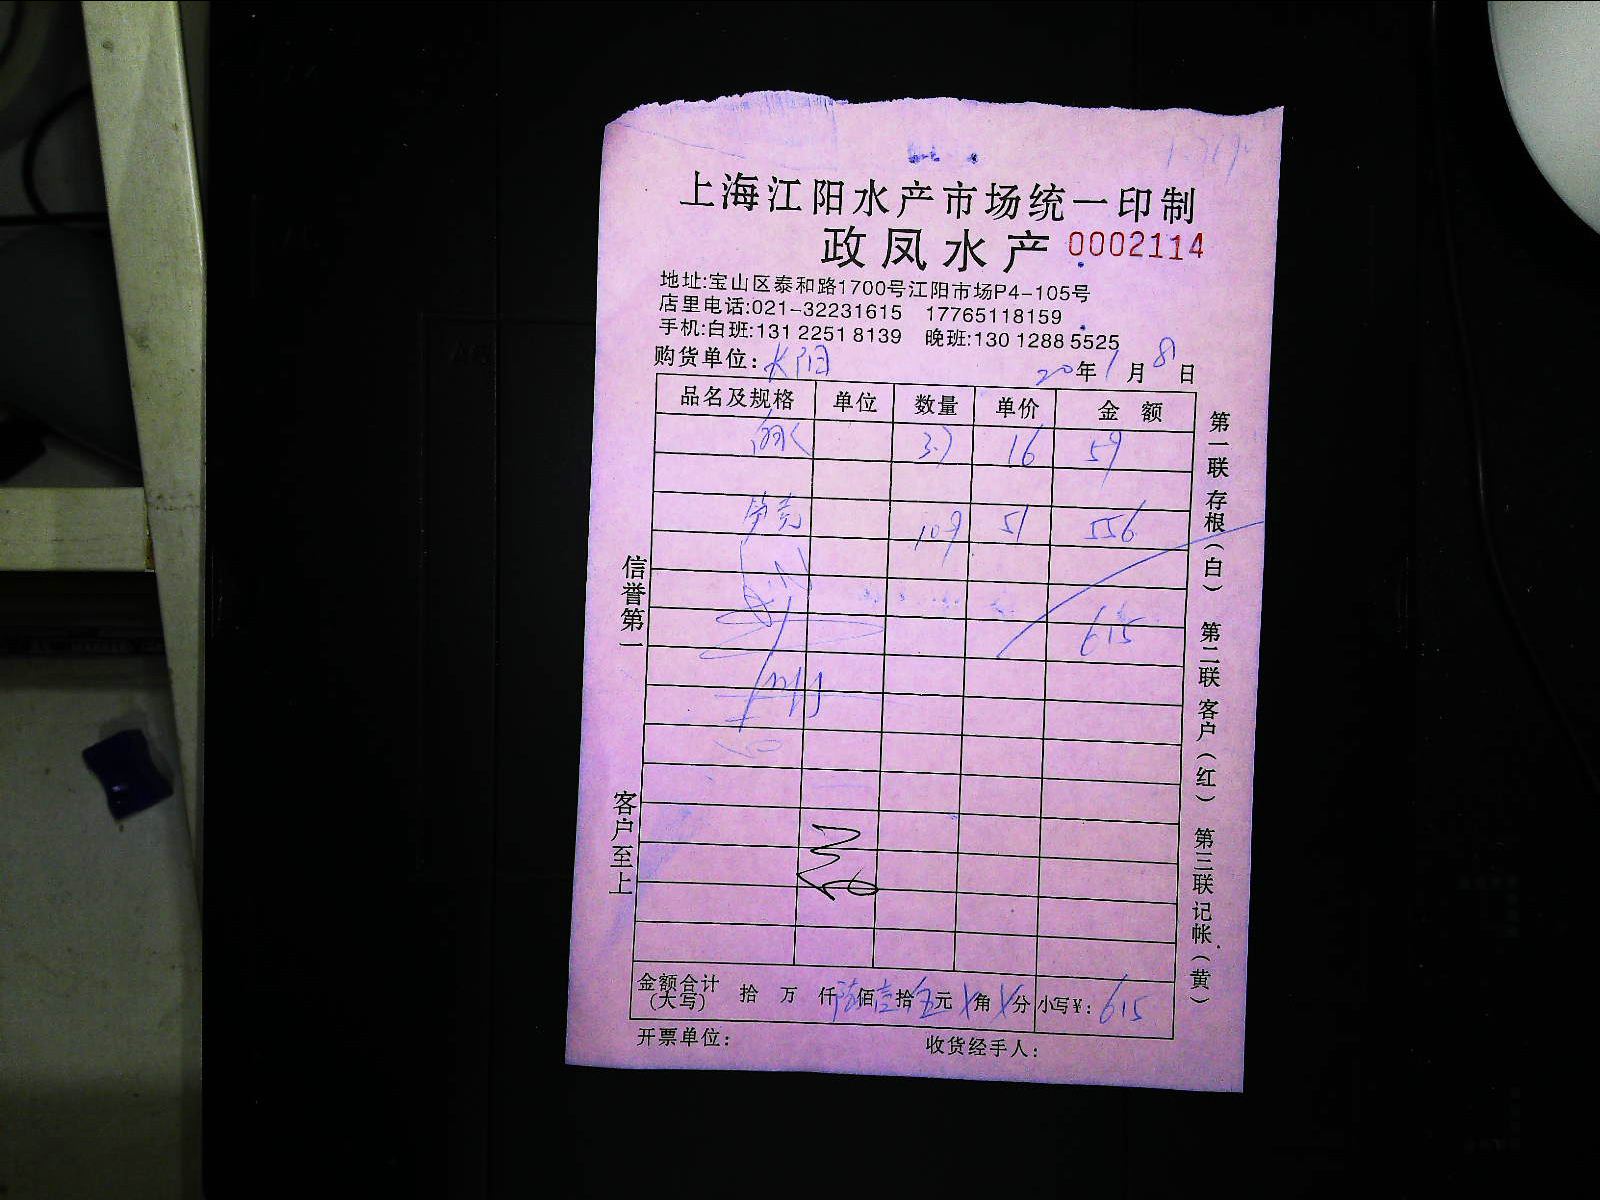 上海江阳水产市场统一印制
政凤水产 0002114
地址:宝山区泰和路1700号江阳市场P4-105号
店里电话:021-32231615 17765118159
手机:白班:131 2251 8139 晚班:130 1288 5525
购货单位: 20年1月8日
品名及规格 单位 数量 单价 金额
3.7 16 59
109 51 556
615
信誉第一
客户至上
第一联存根(白) 第二联客户(红) 第三联记帐(黄)
金额合计 拾 万 仟陆佰壹拾伍元 角 分 小写¥:615
(大写)
开票单位: 收货经手人: